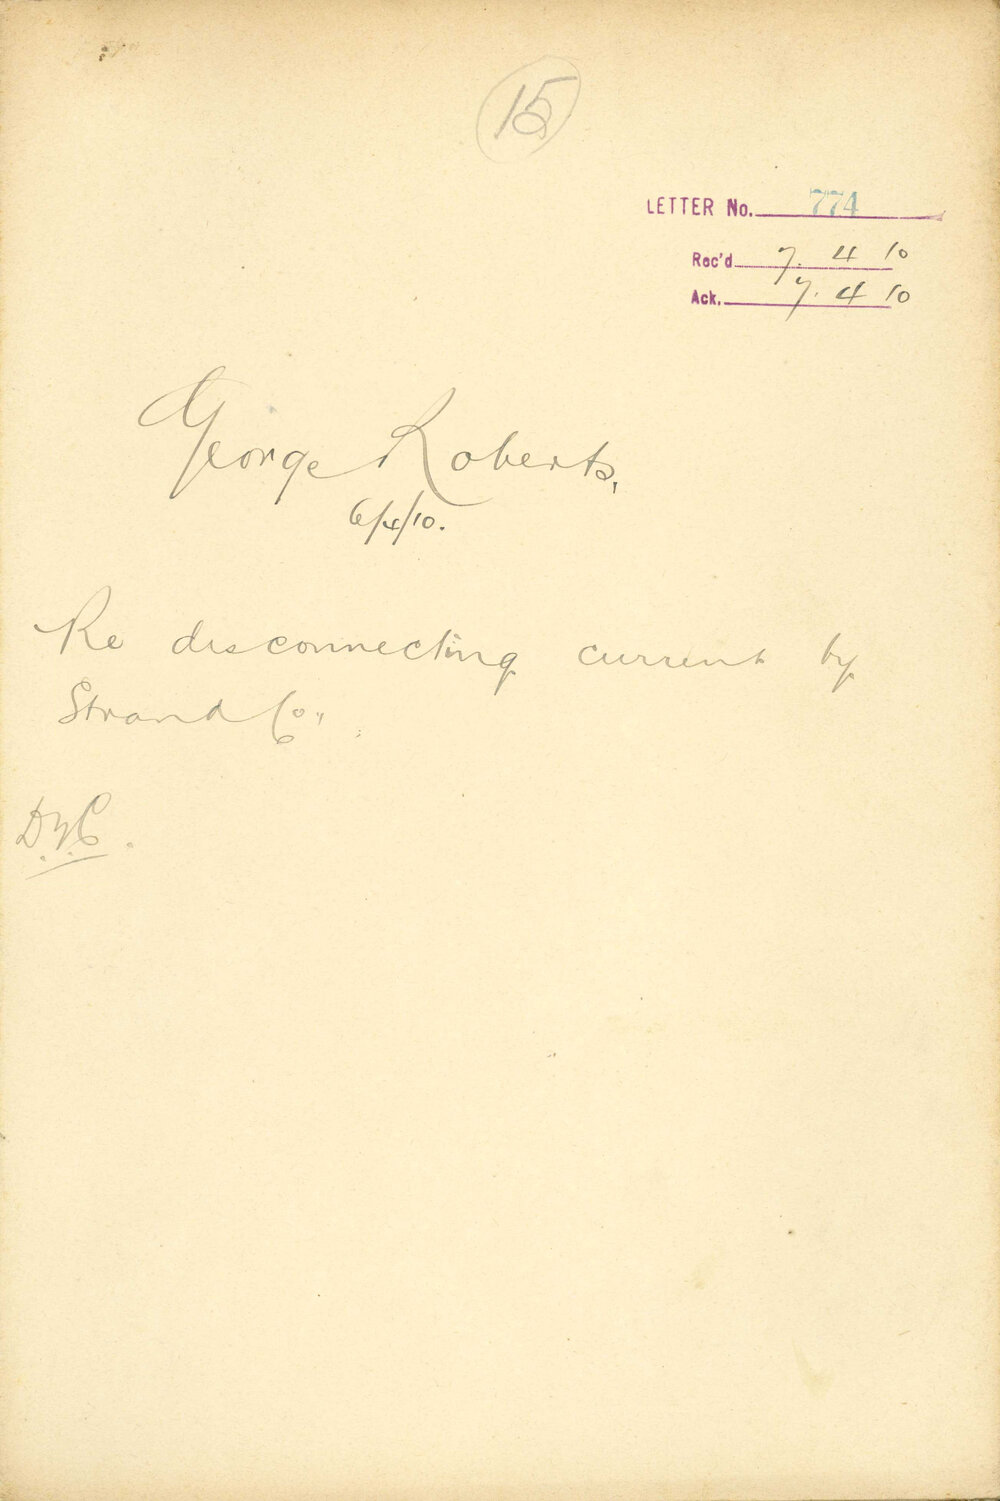 15
LETTER No. 774
Rec'd 7. 4 10
Ack. 7. 4 10
George Roberts,
6/4/10.
Re disconnecting current by
Strand Co.,